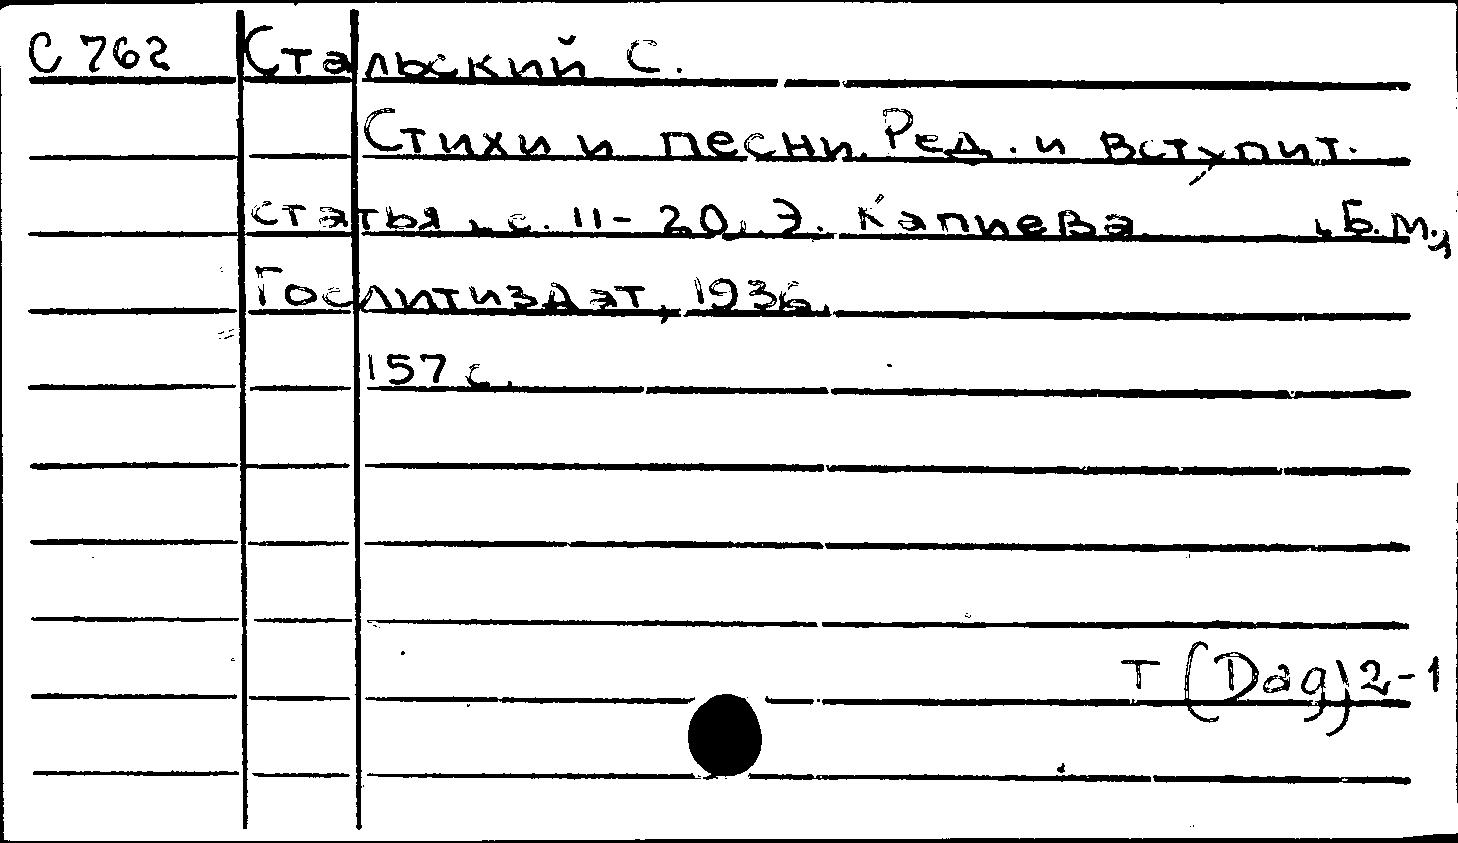 С 762 Стальский С.
Стихи и песни. Ред. и вступит.
статья, с. 11-20, Э. Капиева. Б.м.,
Гослитиздат, 1936.
157 с.
T (Dag) 2-1